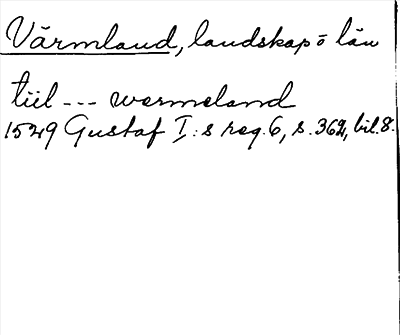 Värmland, landskap o län
tiil --- wermeland
1529 Gustaf I:s reg. 6, s. 362, bil. 8.